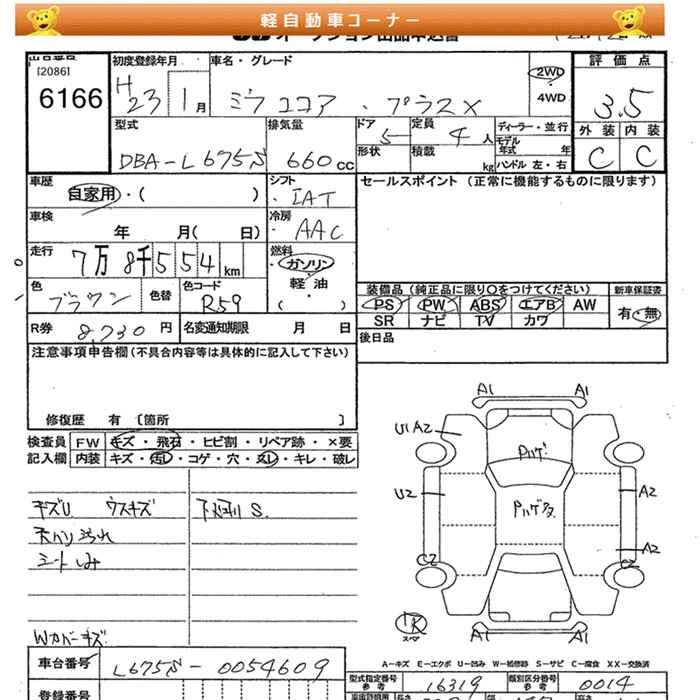 軽自動車コーナー
[2086]
6166
初度登録年月
H23 1月
車名・グレード
ミラココア・プラスX
2WD
・
4WD
評価点
3.5
外装 内装
C C
型式
DBA-L675S
排気量
660cc
ドア
5
形状
定員
4人
積載
kg
ディーラー・並行
モデル年式 年
ハンドル 左・右
車歴
自家用・( )
シフト
IAT
セールスポイント (正常に機能するものに限ります)
車検
年 月( 日)
冷房
AAC
走行
7万8千554km
燃料
ガソリン
軽油
( )
色
ブラウン
色替
色コード
R59
装備品(純正品に限り○をつけてください)
PS PW ABS エアB AW
SR ナビ TV カワ
新車保証書
有・無
R券
8,730円
名変通知期限 月 日
後日品
注意事項申告欄(不具合内容等は具体的に記入して下さい)
修復歴 有 [箇所 ]
検査員記入欄
FW キズ・飛石・ヒビ割・リペア跡・×要
内装 キズ・汚れ・コゲ・穴・スレ・キレ・破レ
キズU ウスキズ
下廻りS.
天ハリ汚れ
シートしみ
Wカバーキズ
A1 A1
U1 A2
Pハゲ
U2
A2
Pハゲタ
A2
C2 C2
A1 A1
スペア
A-キズ E-エクボ U-凹み W-補修跡 S-サビ C-腐食 XX-交換済
車台番号
L675S-0054609
型式指定番号
参考
16319
類別区分番号
参考
0014
登録番号